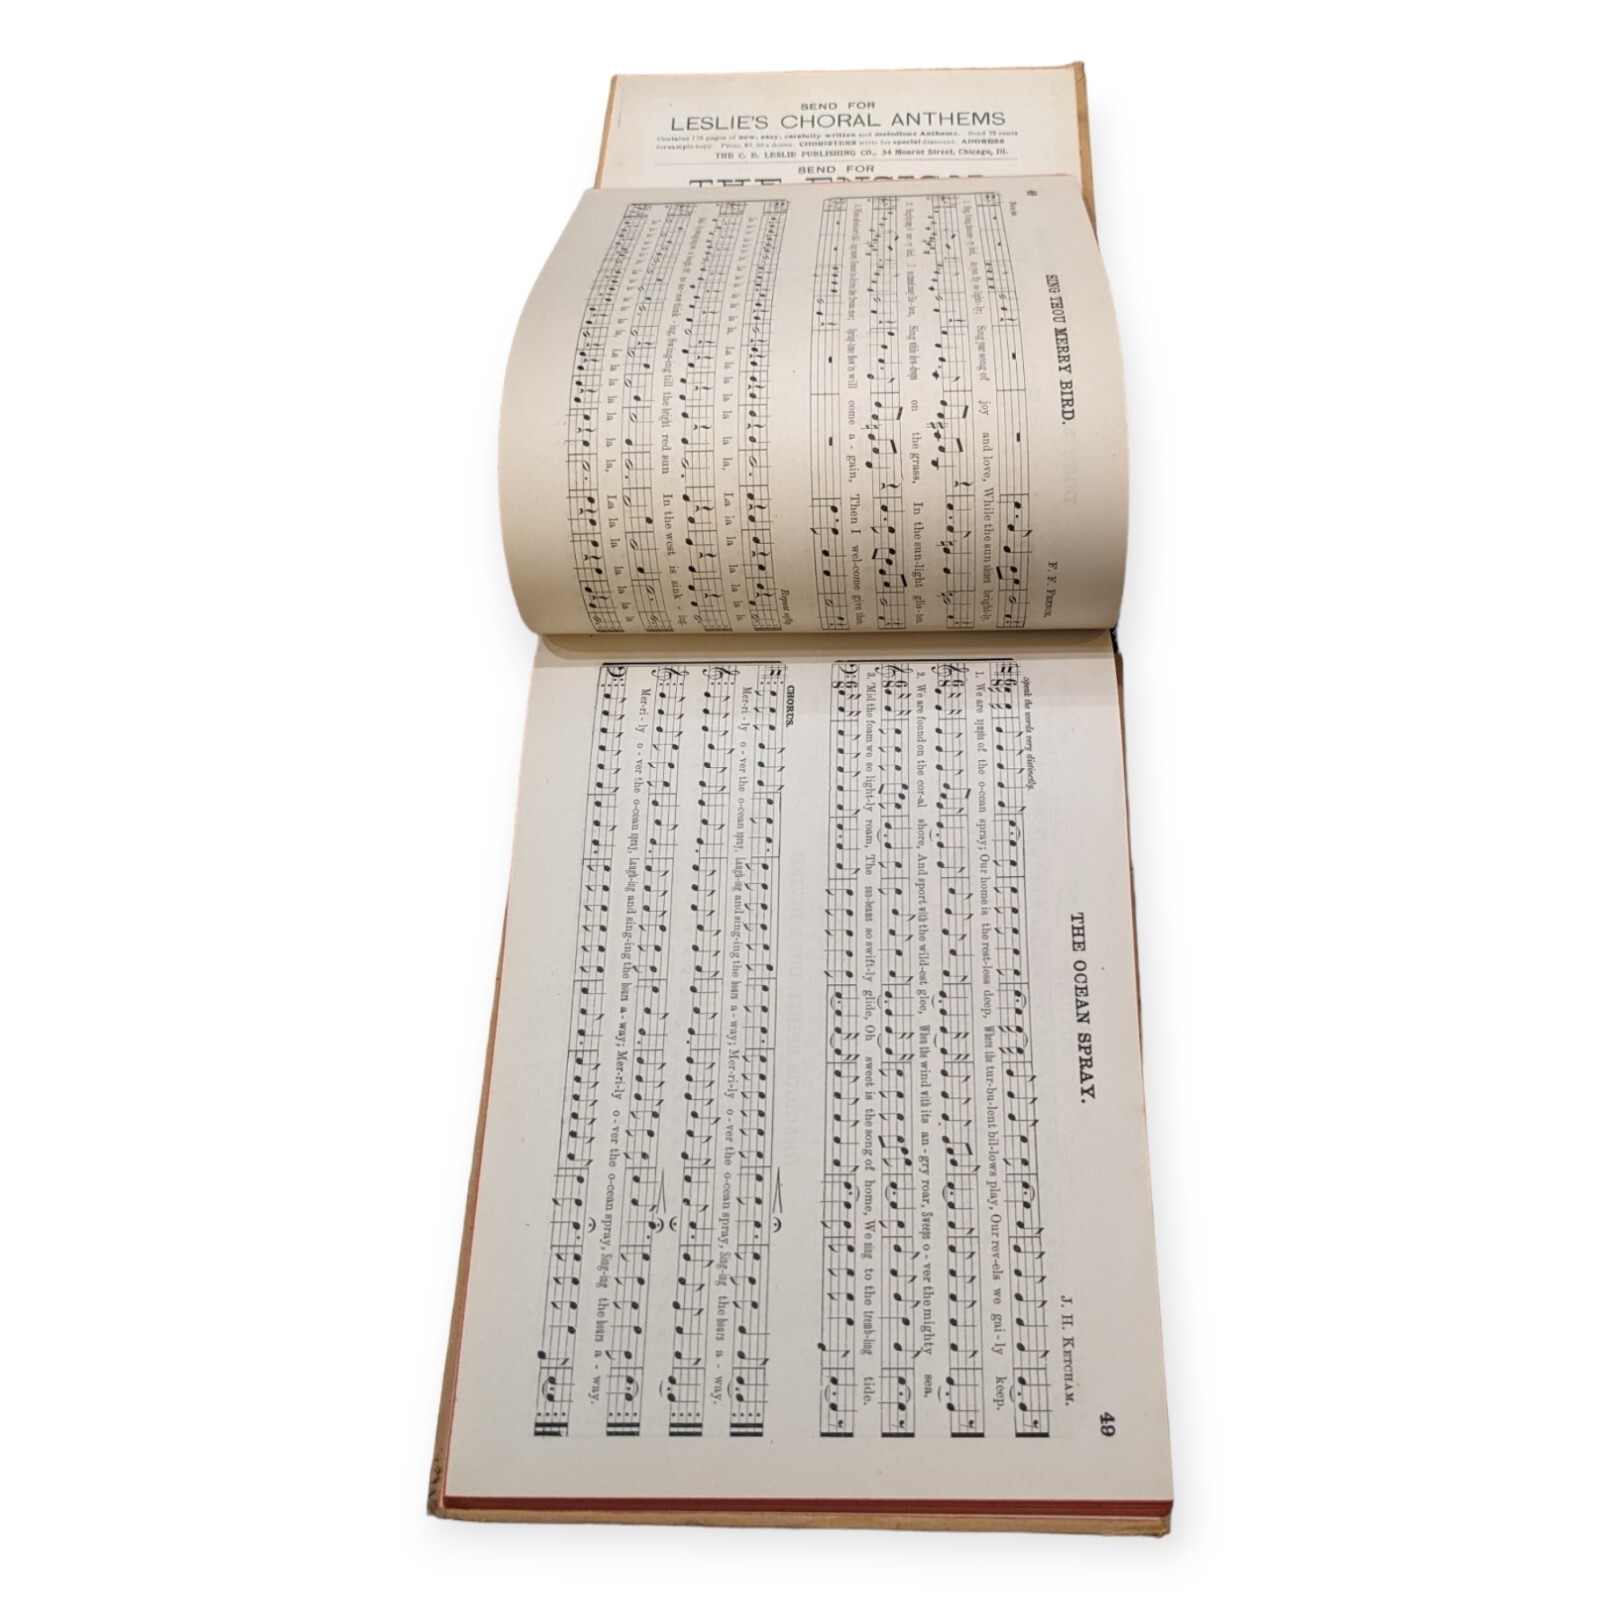 SEND FOR
LESLIE'S CHORAL ANTHEMS
Contains 176 pages of new, easy, carefully written and melodious Anthems. Send 75 cents
for sample copy. Price, $7.50 a dozen. CHORISTERS write for special discount. ADDRESS
THE C. E. LESLIE PUBLISHING CO., 34 Monroe Street, Chicago, Ill.
SEND FOR
THE ENSIGN
SING THOU MERRY BIRD.
joy and love, While the sun shines bright-ly.
on the grass, In the sun-light glis-ten.
come a - gain, Then I wel-come give thee.
Repeat
La la la la la la la, La la la la la la la
Swing-ing till the bright red sun In the west is sink - ing.
La la la la la la la, La la la la la la la
49
THE OCEAN SPRAY.
J. H. KETCHAM.
Speak the words very distinctly.
1. We are nymphs of the o-cean spray; Our home is the rest-less deep, Where the tur-bu-lent bil-lows play, Our rev-els we gai - ly keep.
2. We are found on the cor-al shore, And sport with the wild-est glee, When the wind with its an - gry roar, Sweeps o - ver the mighty sea.
3. 'Mid the foam we so light-ly roam, The sun-beams so swift-ly glide, Oh sweet is the song of home, We sing to the tremb-ling tide.
CHORUS.
Mer-ri - ly o - ver the o-cean spray, Laugh-ing and sing-ing the hours a - way; Mer-ri-ly o - ver the o-cean spray, Sing-ing the hours a - way.
Mer-ri - ly o - ver the o-cean spray, Laugh-ing and sing-ing the hours a - way; Mer-ri-ly o - ver the o-cean spray, Sing-ing the hours a - way.